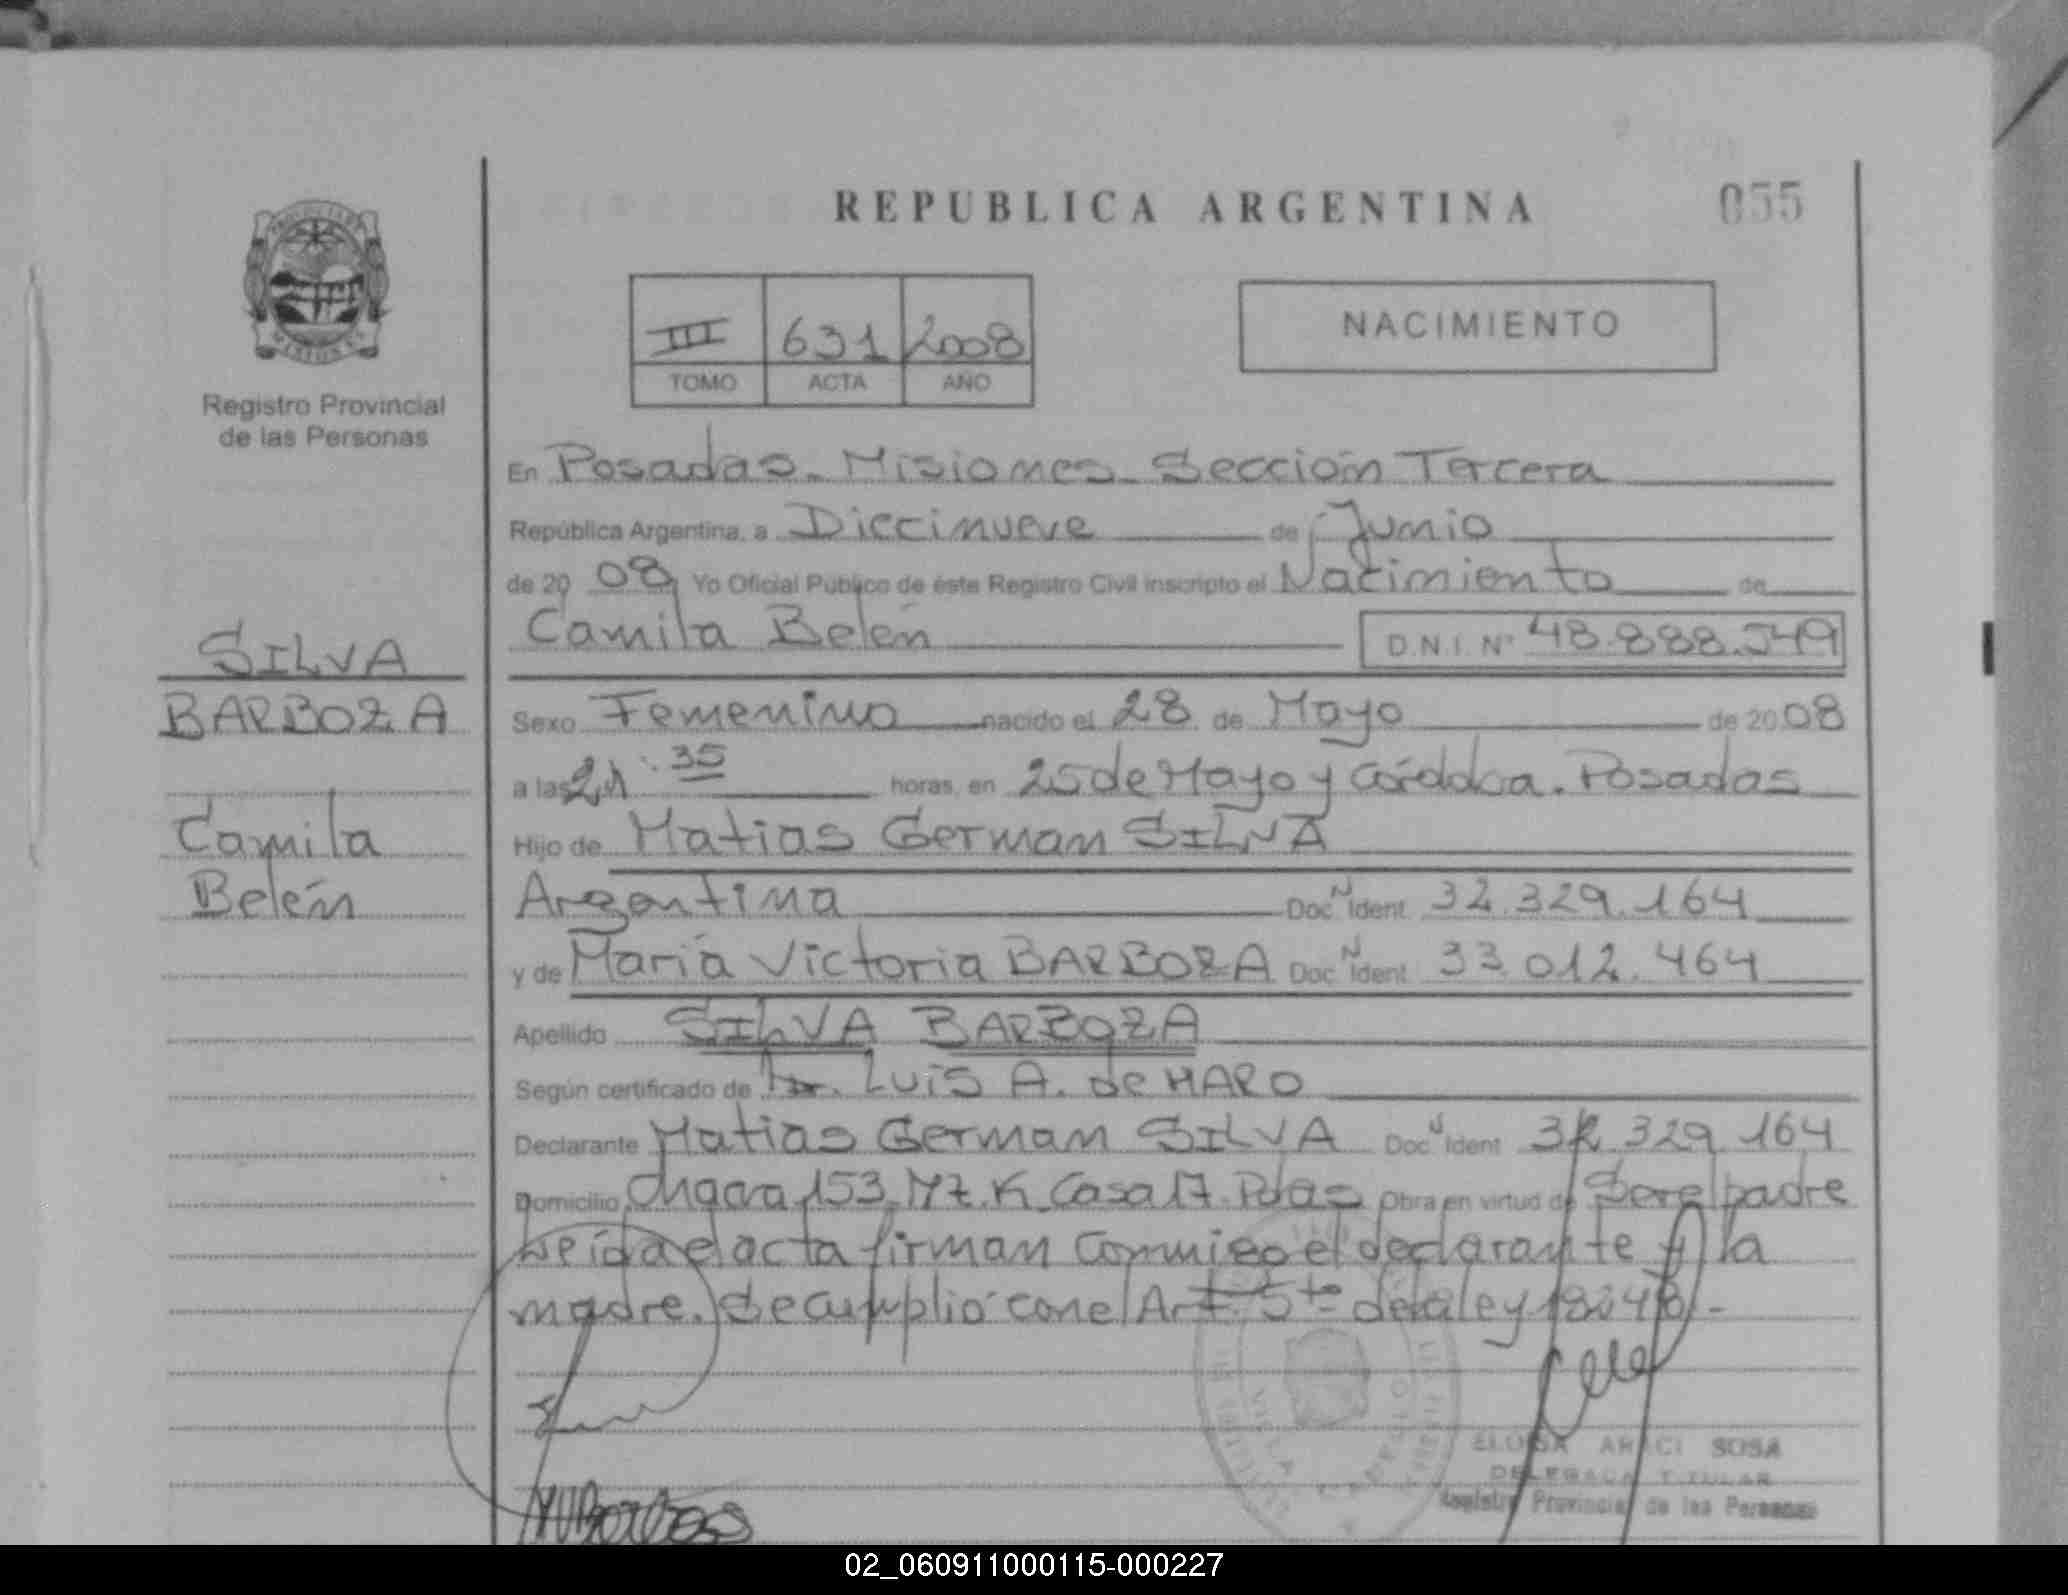 REPUBLICA ARGENTINA
055
PROVINCIA DE MISIONES
Registro Provincial
de las Personas
III 631 2008
TOMO ACTA AÑO
NACIMIENTO
SILVA
BARBOZA
Camila
Belén
En Posadas - Misiones - Sección Tercera
República Argentina, a Diecinueve de Junio
de 2008 Yo Oficial Público de éste Registro Civil inscripto el Nacimiento de
Camila Belén D.N.I. Nº 48.888.549
Sexo Femenino nacido el 28 de Mayo de 2008
a las 21:35 horas, en 25 de Mayo y Córdoba. Posadas
Hijo de Matias German SILVA
Argentina Doc N Ident 32.329.164
y de María Victoria BARBOZA Doc N Ident 33.012.464
Apellido SILVA BARBOZA
Según certificado de Dr. Luis A. de HARO
Declarante Matias German SILVA Doc N Ident 32.329.164
Domicilio Chacra 153 Mz. K Casa 17 Pdas Obra en virtud de Ser el padre
Leída el acta firman conmigo el declarante y la
madre. Se cumplió con el Art 5to de la ley 18248.-
ELOISA ARACI SOSA
DELEGADA TITULAR
Registro Provincial de las Personas
02_060911000115-000227